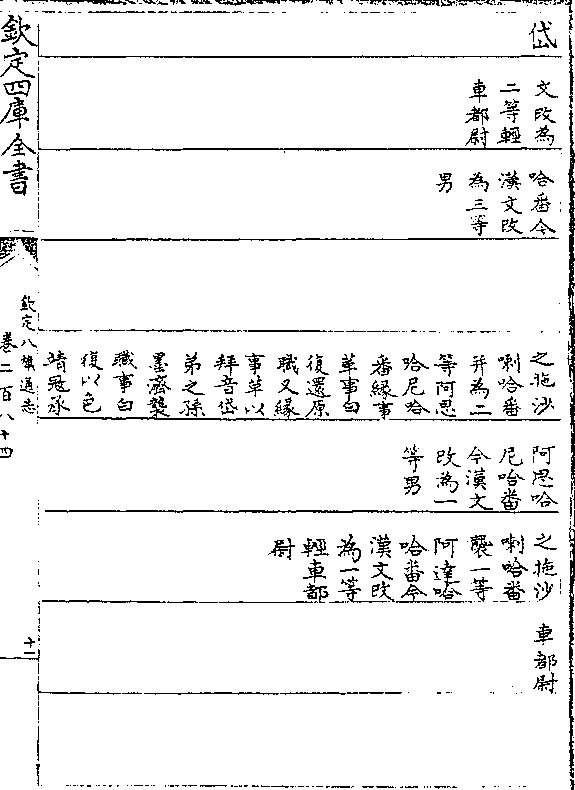 岱
文改為
二等輕
車都尉
哈番今
漢文改
為三等
男
之拖沙
喇哈番
并為二
等阿思
哈尼哈
番緣事
革事白
復還原
職又緣
事革以
拜音岱
弟之孫
墨齊襲
職事白
復以色
靖冠承
阿思哈
尼哈番
今漢文
改為一
等男
之拖沙
喇哈番
襲一等
阿達哈
哈番今
漢文改
為一等
輕車都
尉
車都尉
欽定四庫全書
欽定八旗通志
卷二百八十四
十一